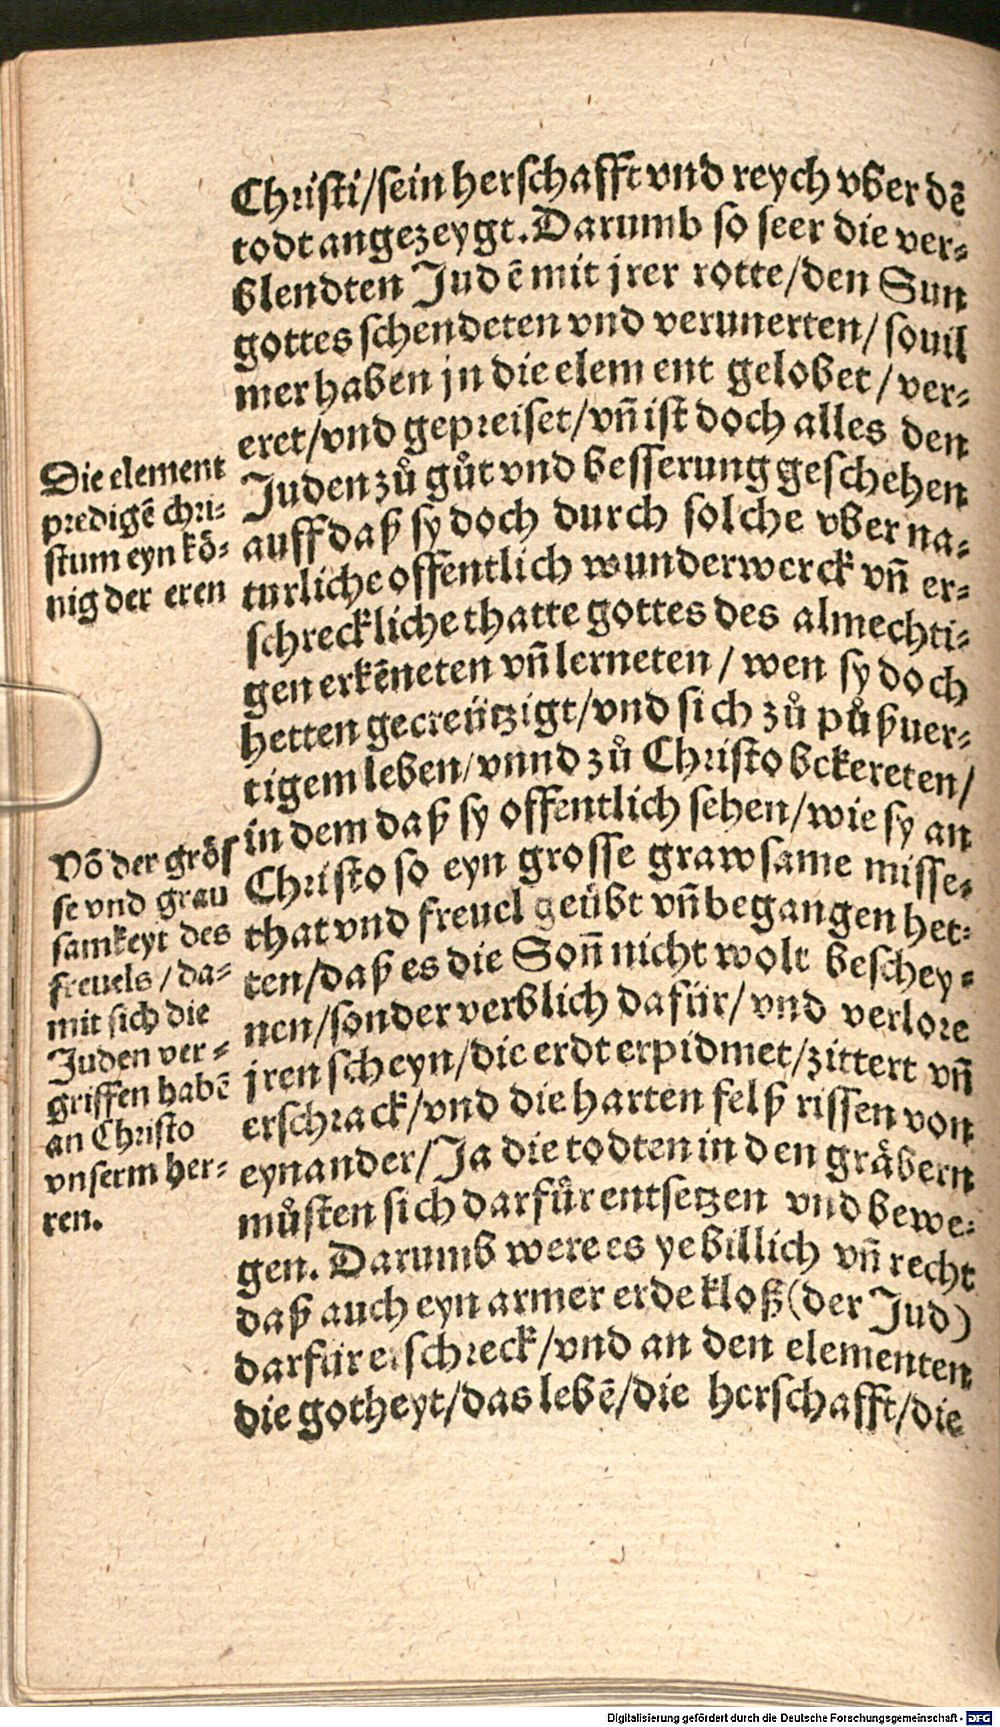 Christi/sein herschafft vnd reych vber dē
todt angezeygt. Darumb so seer die ver-
blendten Judē mit jrer rotte/den Sun
gottes schendeten vnd verunerten/souil
mer haben jn die element gelobet/ver-
eret/vnd gepreiset/vñ ist doch alles den
Juden zů gůt vnd besserung geschehen
auff daß sy doch durch solche vber na-
turliche offentlich wunderwerck vñ er-
schreckliche thatte gottes des almechti-
gen erkēneten vñ lerneten/wen sy doch
hetten gecreützigt/vnd sich zů půßuer-
tigem leben/vnnd zů Christo bckereten/
in dem daß sy offentlich sehen/wie sy an
Christo so eyn grosse grawsame misse-
that vnd freuel geübt vñ begangen het-
ten/daß es die Soñ nicht wolt beschey-
nen/sonder verblich dafür/vnd verlore
jren scheyn/die erdt erpidmet/zittert vñ
erschrack/vnd die harten felß rissen von
eynander/Ja die todten in den gräbern
můsten sich darfůr entsetzen vnd bewe-
gen. Darumb were es ye billich vñ recht
daß auch eyn armer erdekloß (der Jud)
darfür erschreck/vnd an den elementen
die gotheyt/das lebē/die herschafft/die
Die element
predigē chri-
stum eyn kö-
nig der eren
Võ der grös
se vnd grau
samkeyt des
freuels/da-
mit sich die
Juden ver-
griffen habē
an Christo
vnserm her-
ren.
Digitalisierung gefördert durch die Deutsche Forschungsgemeinschaft - DFG